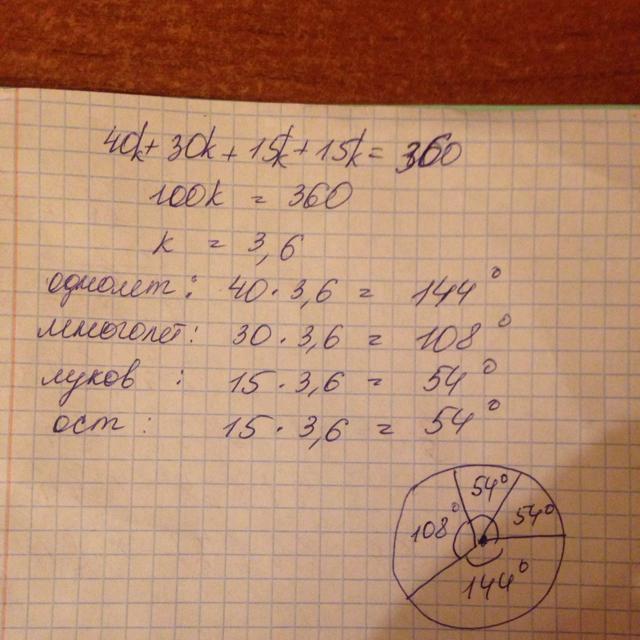 40k + 30k + 15k + 15k = 360
100k = 360
k = 3,6
однолет: 40 · 3,6 = 144°
многолет: 30 · 3,6 = 108°
луков : 15 · 3,6 = 54°
ост : 15 · 3,6 = 54°
54°
108° 54°
144°